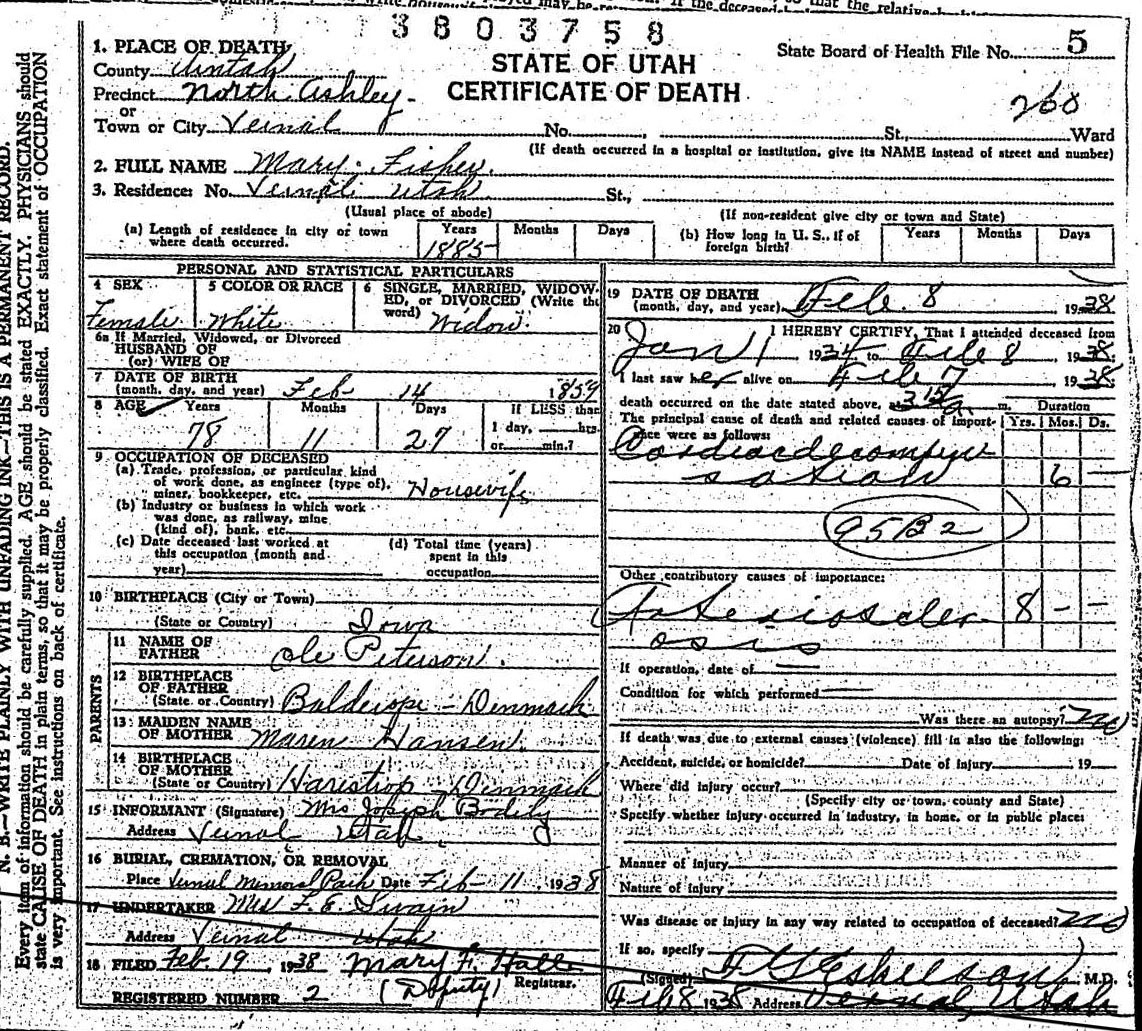 3803758
State Board of Health File No. 5
STATE OF UTAH
CERTIFICATE OF DEATH
268
1. PLACE OF DEATH
County Uintah
Precinct North Ashley
or
Town or City Vernal No. St., Ward
(If death occurred in a hospital or institution, give its NAME instead of street and number)
2. FULL NAME Mary Fisher
3. Residence: No. Vernal Utah St.,
(Usual place of abode) (If non-resident give city or town and State)
(a) Length of residence in city or town where death occurred. Years Months Days
1885
(b) How long in U. S., if of foreign birth? Years Months Days
PERSONAL AND STATISTICAL PARTICULARS
4 SEX 5 COLOR OR RACE 6 SINGLE, MARRIED, WIDOW-
ED, or DIVORCED (Write the
word)
Female White Widow
6a If Married, Widowed, or Divorced
HUSBAND OF
(or) WIFE OF
7 DATE OF BIRTH
(month, day, and year) Feb 14 1859
8 AGE Years Months Days If LESS than
1 day, hrs.
or min.?
78 11 27
9 OCCUPATION OF DECEASED
(a) Trade, profession, or particular kind
of work done, as engineer (type of),
miner, bookkeeper, etc. Housewife
(b) Industry or business in which work
was done, as railway, mine
(kind of), bank, etc.
(c) Date deceased last worked at
this occupation (month and
year)
(d) Total time (years)
spent in this
occupation
10 BIRTHPLACE (City or Town)
(State or Country) Iowa
PARENTS
11 NAME OF
FATHER Ole Peterson
12 BIRTHPLACE
OF FATHER
(State or Country) Denmark
13 MAIDEN NAME
OF MOTHER Maren Hansen
14 BIRTHPLACE
OF MOTHER
(State or Country) Denmark
15 INFORMANT (Signature) Mrs Joseph Bodily
Address Vernal Utah
16 BURIAL, CREMATION, OR REMOVAL
Place Vernal Memorial Park Date Feb - 11 1938
17 UNDERTAKER Mrs F. E. Swain
Address Vernal Utah
18 FILED Feb. 19, 1938 Mary F. Registrar.
REGISTERED NUMBER 2 (Deputy)
19 DATE OF DEATH
(month, day, and year) Feb. 8 1938
20 I HEREBY CERTIFY, That I attended deceased from
Jan 1 1934 to Feb 8 1938
I last saw her alive on Feb 7 1938
death occurred on the date stated above, at 3 15 a. m. Duration
The principal cause of death and related causes of import-
ance were as follows: Yrs. Mos. Ds.
Cardiac decompen
sation 6 -
95B2
Other contributory causes of importance:
Arterioscler 8 - -
osis
If operation, date of
Condition for which performed
Was there an autopsy? No
If death was due to external causes (violence) fill in also the following:
Accident, suicide, or homicide? Date of injury 19
Where did injury occur?
(Specify city or town, county and State)
Specify whether injury occurred in industry, in home, or in public place:
Manner of injury
Nature of injury
Was disease or injury in any way related to occupation of deceased? No
If so, specify
(Signed) Eskelson M.D.
Feb 8 1938 Address Vernal, Utah
N. B.—WRITE PLAINLY WITH UNFADING INK—THIS IS A PERMANENT RECORD.
Every item of information should be carefully supplied. AGE should be stated EXACTLY. PHYSICIANS should
state CAUSE OF DEATH in plain terms, so that it may be properly classified. Exact statement of OCCUPATION
is very important. See instructions on back of certificate.